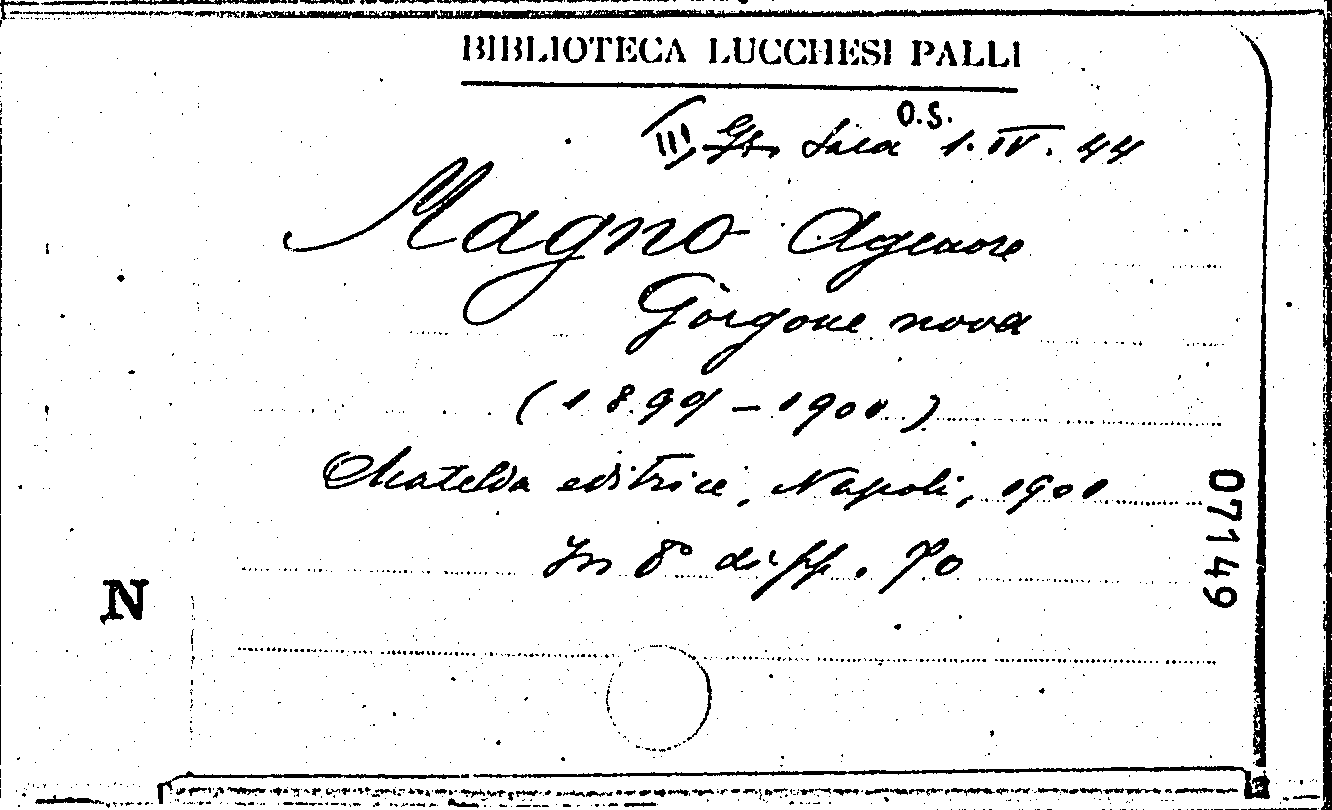 BIBLIOTECA LUCCHESI PALLI
O.S.
III Gr. Sala 1. IV. 44
Magno Agenore
Gorgone nova
(1899-1901)
Matelda editrice, Napoli, 1901
In 8° di pp. 70
07149
N